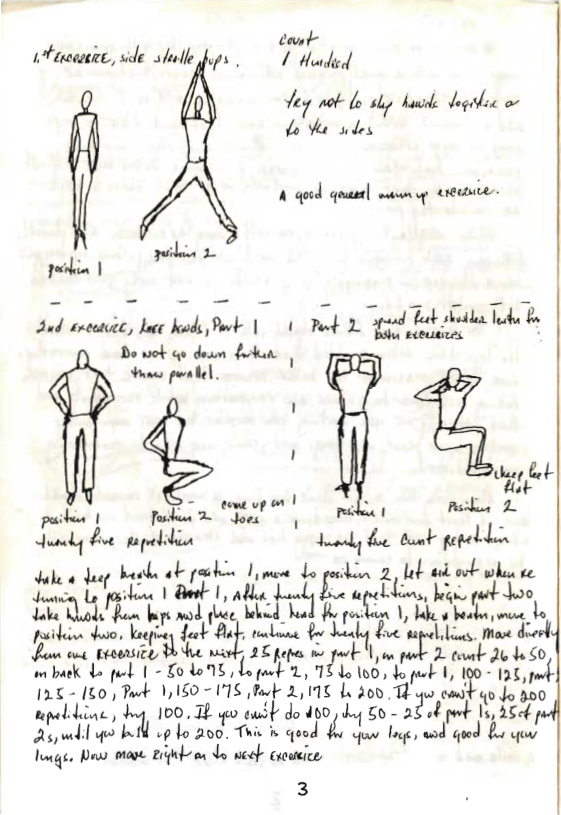 1.st EXCERSIZE, side stradle hops.
Count
1 Hundred
try not to slap hands together or
to the sides
A good general warm up excersize.
position 1
position 2
2nd EXCERSIZE, KNEE bends, Part 1
Do not go down further
than parallel.
position 1
Position 2
come up on
toes
twenty five REpetition
Part 2 spread feet shoulder leath for
both EXCERSIZES
Position 1
Position 2
keep feet
flat
twenty five Cunt REpetition
take a deep breath at position 1, move to position 2, let air out when re
turning to position 1 Part 1, After twenty five repetitions, begin part two
take hands from hips and place behind head for position 1, take a breath, move to
position two, keeping feet flat, continue for twenty five repetitions. Move directly
from one EXCERSIZE to the next, 25 Repes in part 1, on part 2 count 26 to 50,
on back to part 1 - 50 to 75, to part 2, 75 to 100, to part 1, 100 - 125, part 2
125 - 150, Part 1, 150 - 175, Part 2, 175 to 200. If you can't go to 200
repetitions, try 100. If you can't do 100, try 50 - 25 of part 1s, 25 of part
2s, until you build up to 200. This is good for your legs, and good for your
lungs. Now move Right on to NEXT EXCERSIZE
3